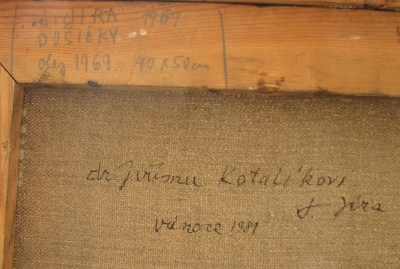 J. JÍRA 1969
DUŠIČKY
olej 1969 40 x 50 cm
dr Jiřímu Kotalíkovi
J. Jíra
vánoce 1981